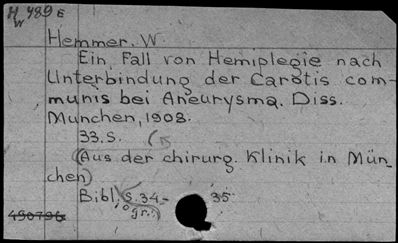 H 489 E
W
Hemmer. W.
Ein Fall von Hemiplegie nach
Unterbindung der Carotis com-
munis bei Aneurysma. Diss.
München, 1908.
33.S.
(Aus der chirurg. Klinik in Mün-
chen)
Bibl. S. 34.- 35
gr.
490796